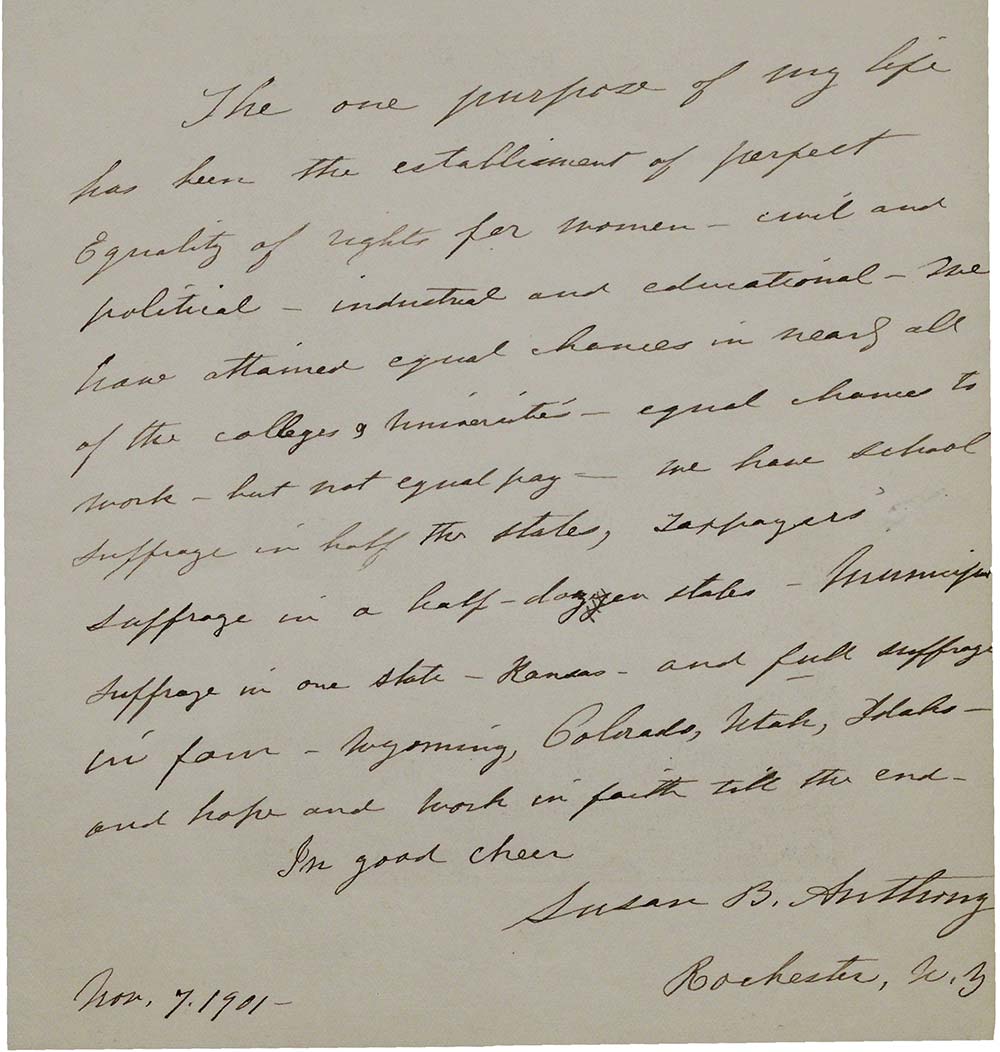 The one purpose of my life
has been the establisment of perfect
Equality of rights for women – civil and
political – industrial and educational – We
have attained equal chances in nearly all
of the colleges & Universities – equal chances to
work – but not equal pay – we have school
suffrage in half the states, Taxpayers'
suffrage in a half-dozen states – Municipal
suffrage in one state – Kansas – and full suffrage
in four – Wyoming, Colorado, Utah, Idaho –
and hope and work in faith till the end –
In good cheer
Susan B. Anthony
Rochester, N.Y
Nov. 7. 1901 –